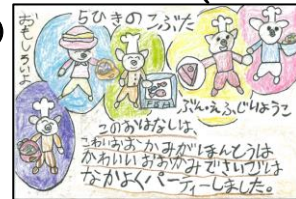 5ひきのこぶた
おもしろいよ
ぶん・え ふじいようこ
このおはなしは、
こわいおおかみがほんとうは
かわいいおおかみでさいごは
なかよくパーティーしました。